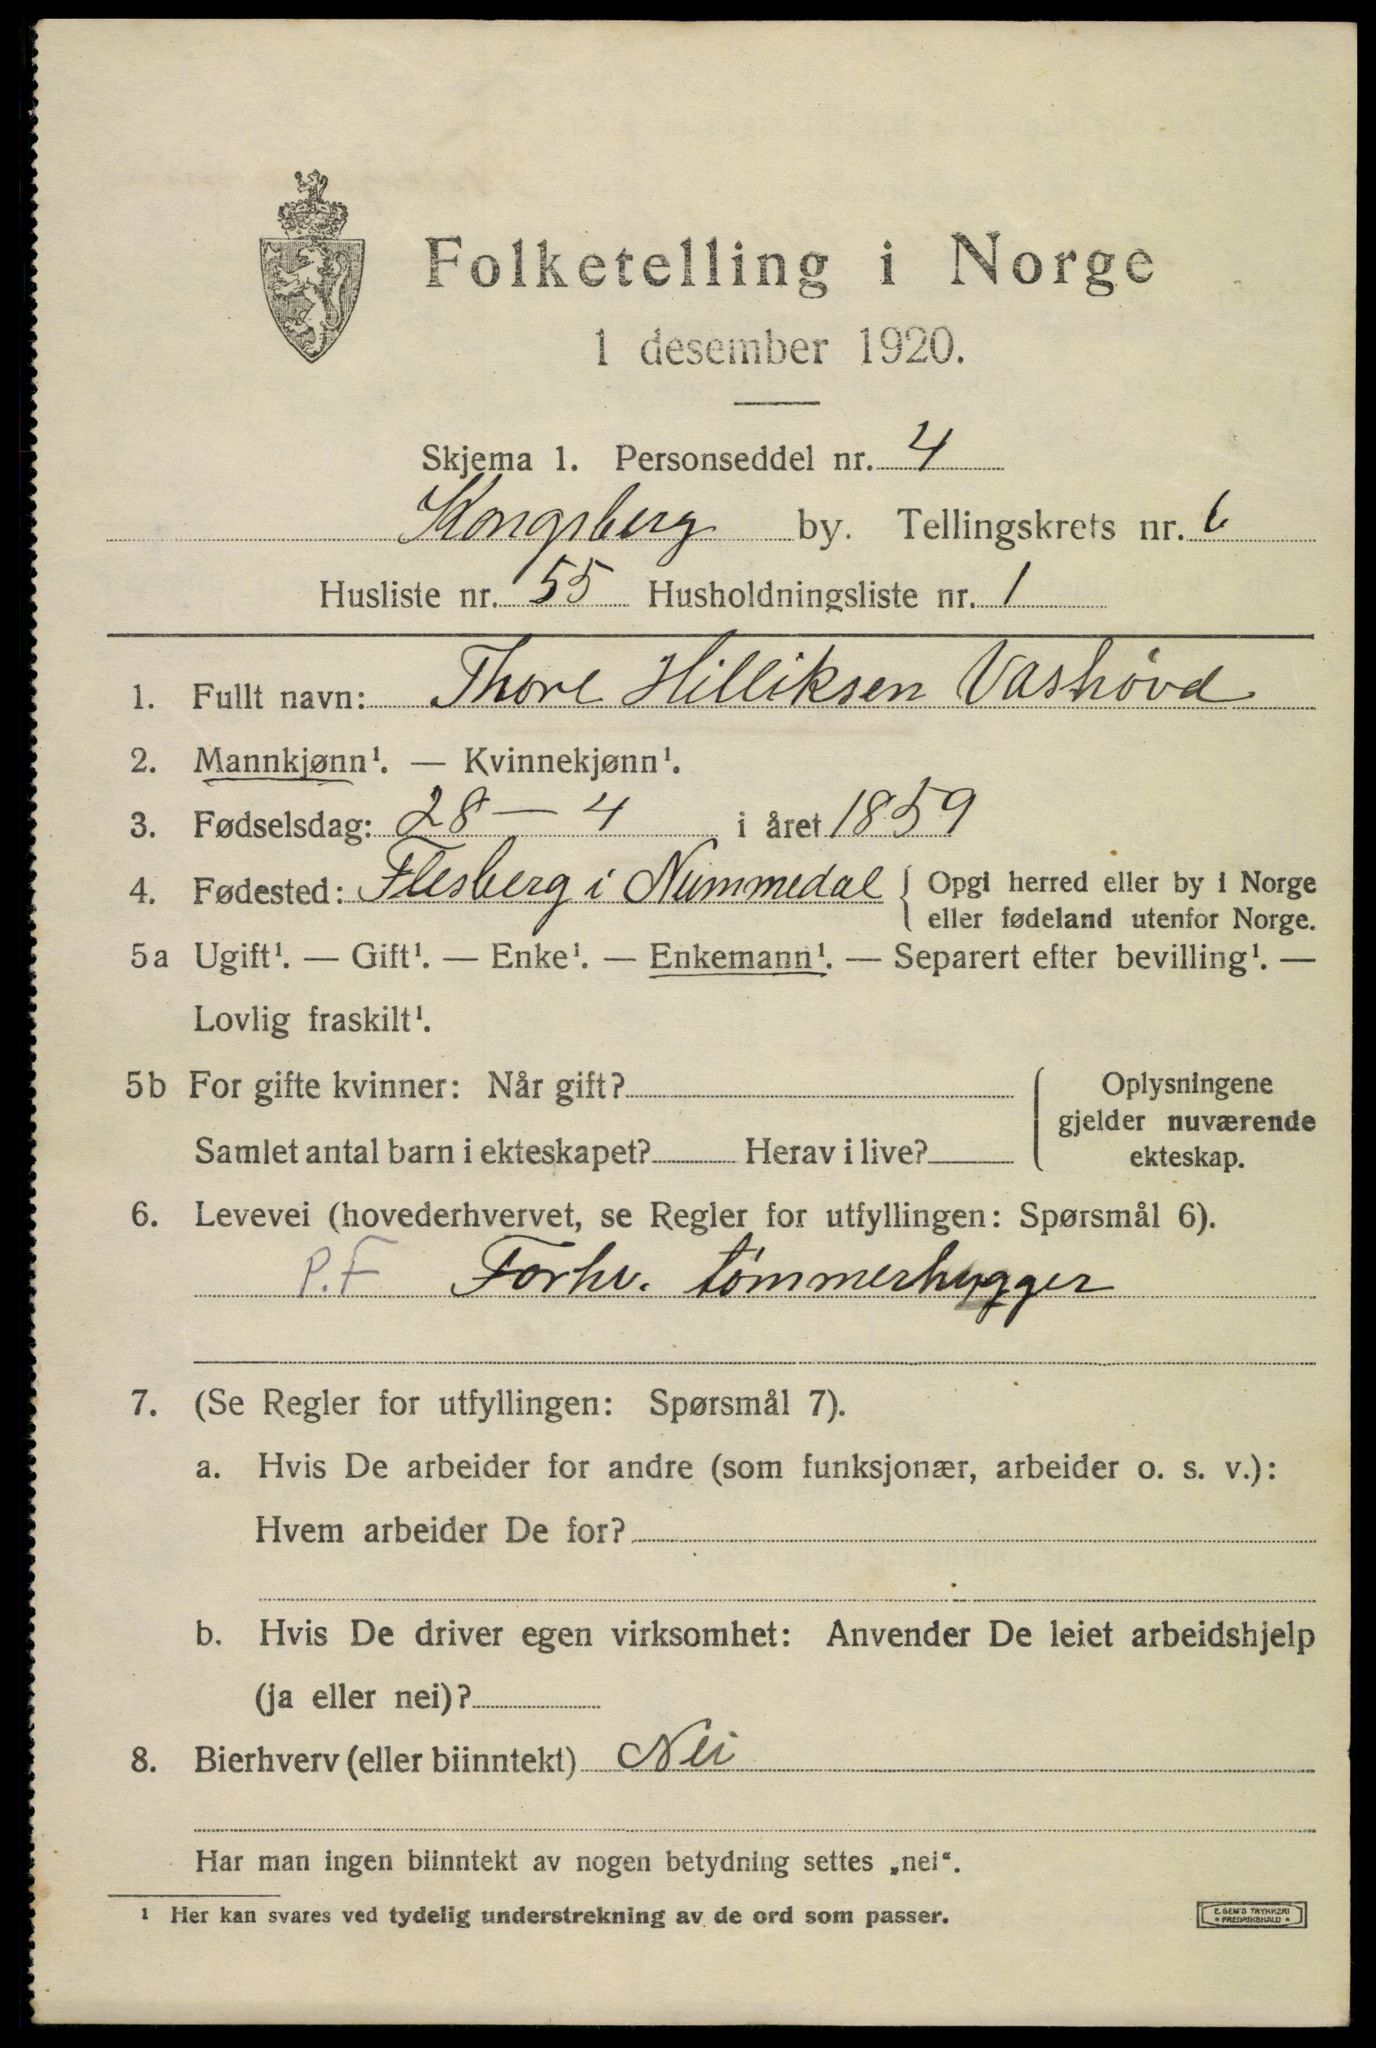 Folketelling i Norge
1 desember 1920.
Skjema 1. Personseddel nr. 4
Kongsberg by. Tellingskrets nr. 6
Husliste nr. 55 Husholdningsliste nr. 1
1. Fullt navn: Thore Hilliksen Vashovd
2. Mannkjønn¹. — Kvinnekjønn¹.
3. Fødselsdag: 28 — 4 i året 1859
4. Fødested: Flesberg i Nummedal { Opgi herred eller by i Norge
eller fødeland utenfor Norge.
5a Ugift¹. — Gift¹. — Enke¹. — Enkemann¹. — Separert efter bevilling¹. —
Lovlig fraskilt¹.
5b For gifte kvinner: Når gift? { Oplysningene
gjelder nuværende
Samlet antal barn i ekteskapet? Herav i live? ekteskap.
6. Levevei (hovederhvervet, se Regler for utfyllingen: Spørsmål 6).
P.F Forhv. tømmerhugger
7. (Se Regler for utfyllingen: Spørsmål 7).
a. Hvis De arbeider for andre (som funksjonær, arbeider o. s. v.):
Hvem arbeider De for?
b. Hvis De driver egen virksomhet: Anvender De leiet arbeidshjelp
(ja eller nei)?
8. Bierhverv (eller biinntekt) Nei
Har man ingen biinntekt av nogen betydning settes „nei“.
¹ Her kan svares ved tydelig understrekning av de ord som passer.
E. SEM'S TRYKKERI
• FREDRIKSHALD •